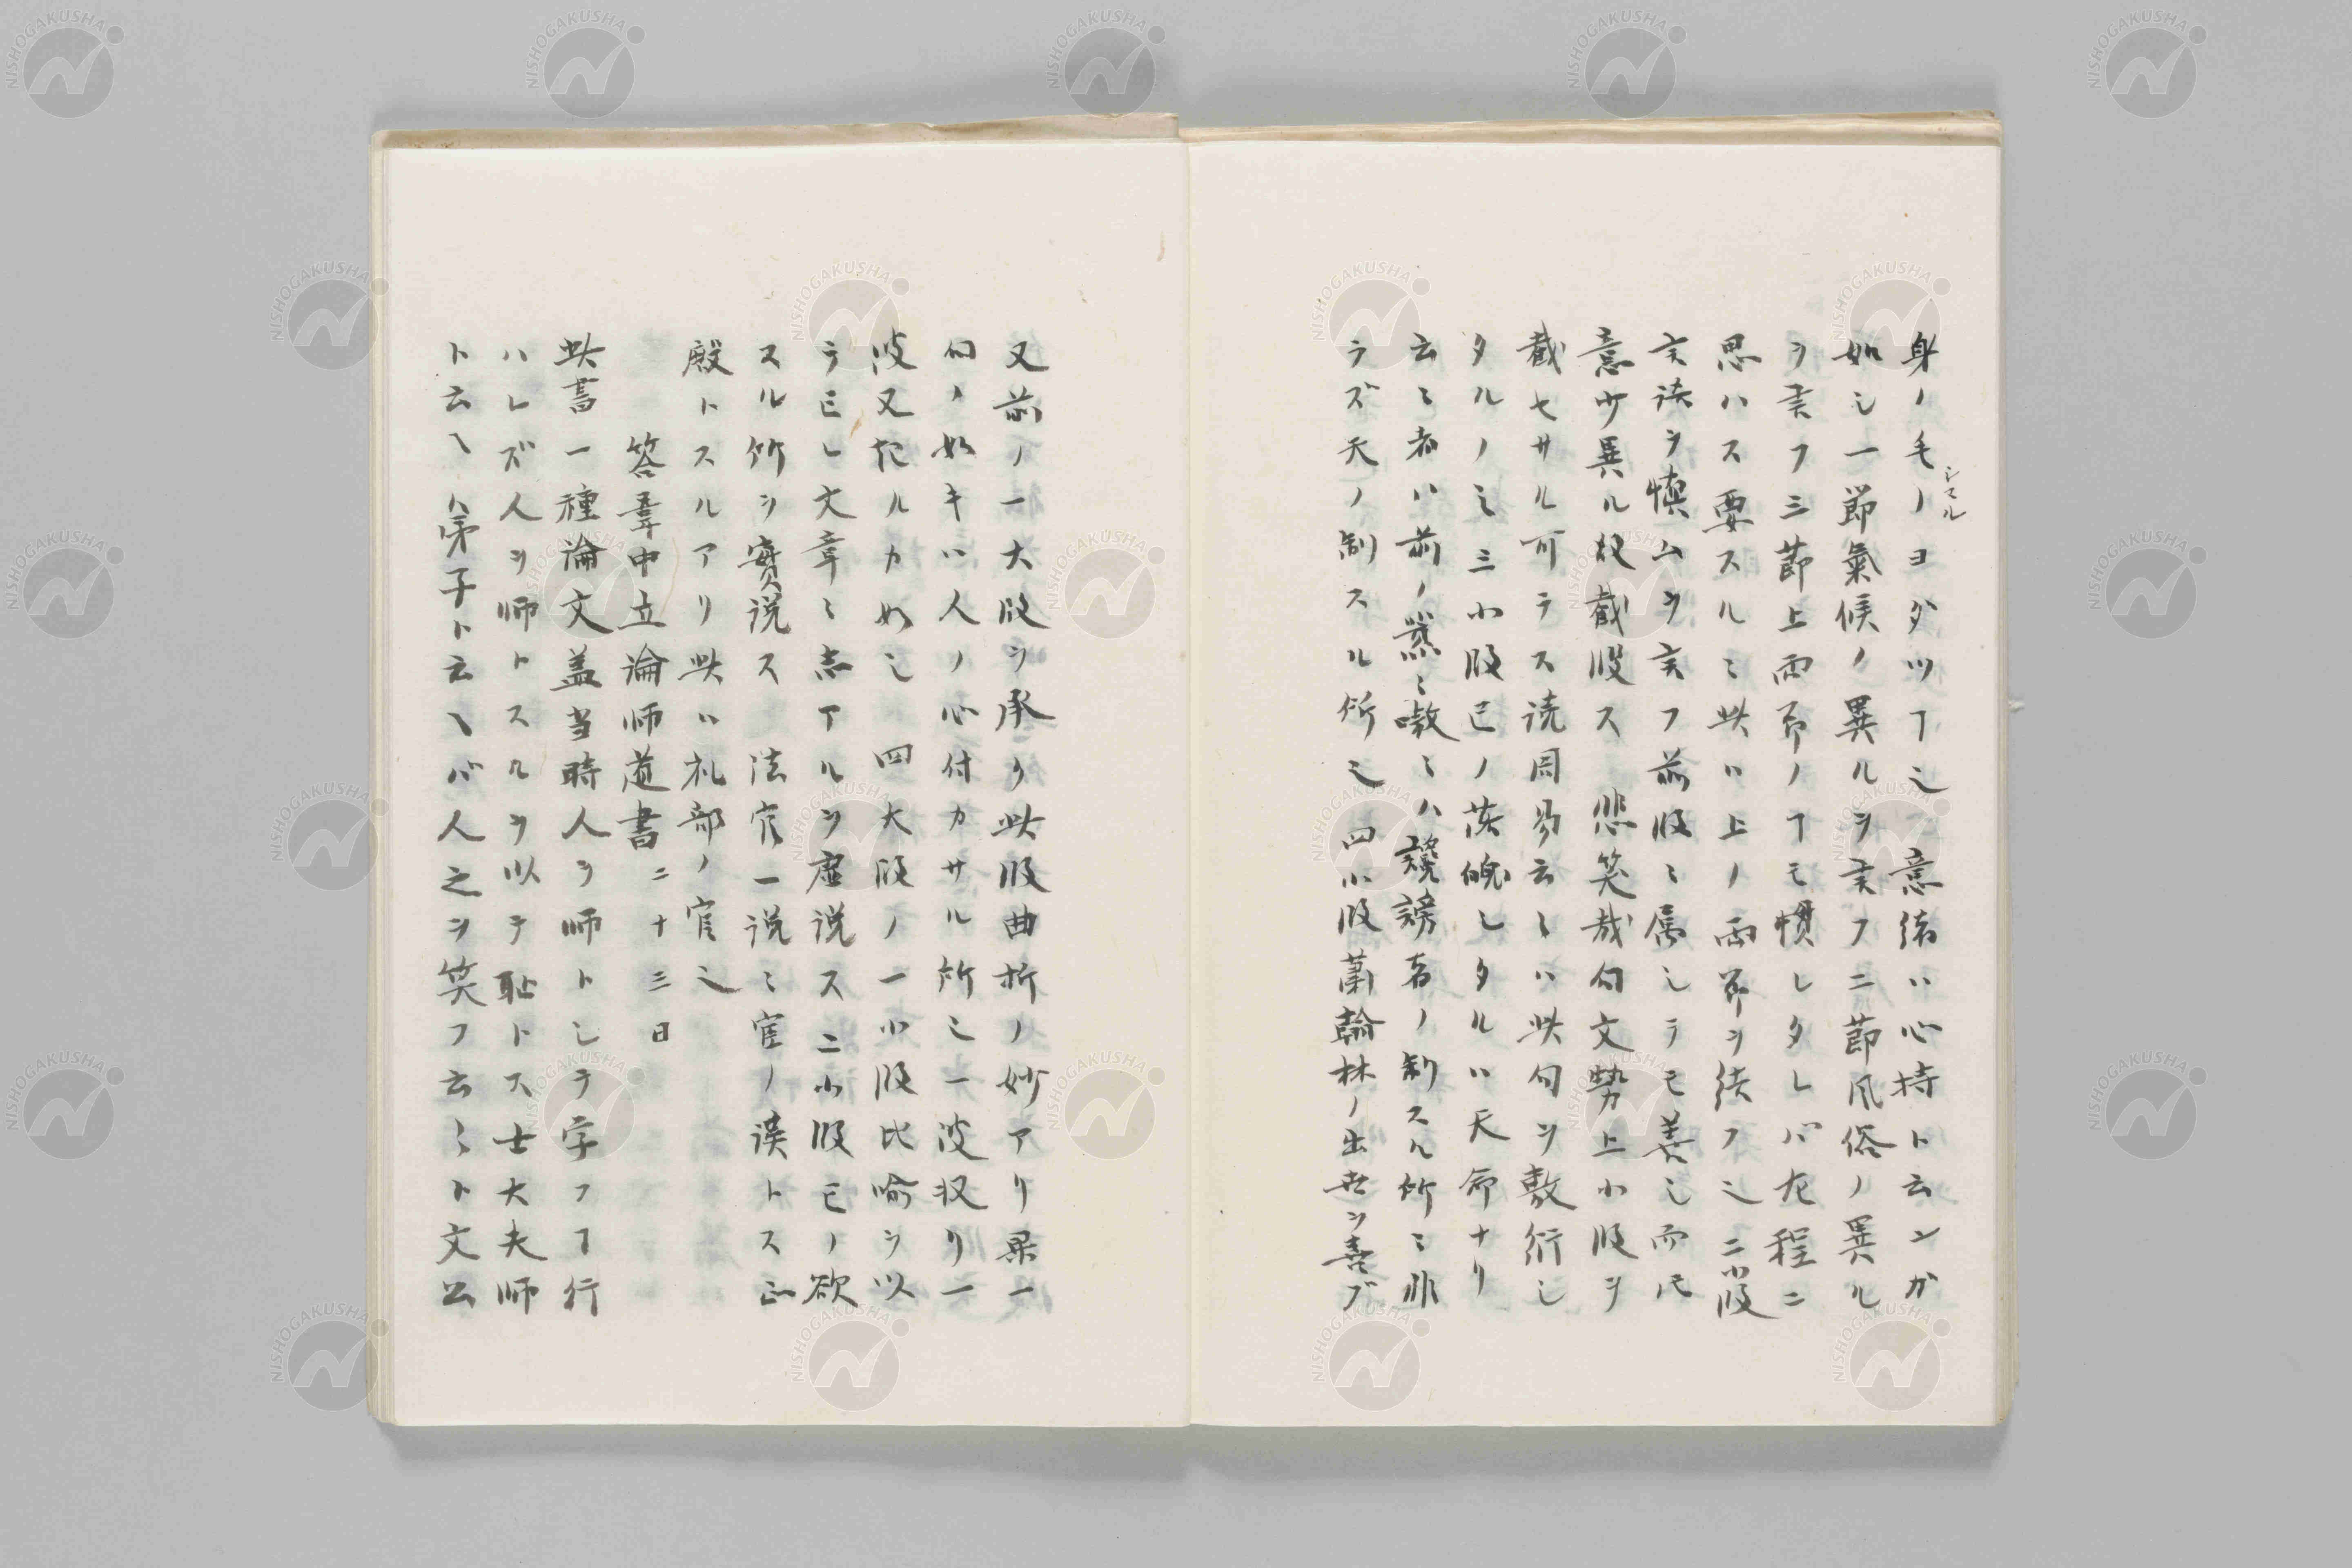 身ノ毛ノヨダツヿ之　意緒ハ心持ト云ンガ
シマル
如シ一節氣候ノ異ルヲ言フ二節風俗ノ異ル
ヲ言フ三節上両節ノヿモ慣レタレバ左程ニ
思ハス要スルニ此ハ上ノ両節ヲ結フ之二小段
言語ヲ慎ムヲ言フ前段ニ属シテモ善シ而氏
意少異ル故截段ス　悲笑哉句文勢上小段ヲ
截セサル可ラス読周易云々ハ此句ヲ敷衍シ
タルノミ三小段已ノ落魄シタルハ天命ナリ
云々者ハ前ノ嗷々ハ譏謗者ノ制スル所ニ非
ラズ天ノ制スル所之　四小段蕭翰林ノ出世ヲ喜ブ
又前ノ一大段ヲ承ク此段曲折ノ妙アリ果一
句ノ如キハ人ノ心付カサル所ニ一波収リ一
波又起ルカ如シ　四大段ノ一小段比喩ヲ以
テ已レ文章ニ志アルヲ虚説ス二小段已ノ欲
スル所ヲ實説ス　法官一説ニ官ノ誤トス正
殿トスルアリ此ハ礼部ノ官之
答韋中立論師道書　二十三日
此書一種論文蓋当時人ヲ師トシテ学フヿ行
ハレズ人ヲ師トスルヲ以テ恥トス士大夫師
ト云ヽハ弟子ト云ヽバ人之ヲ笑フ云々ト文公